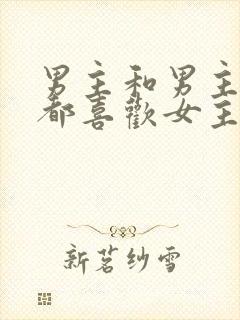 男主和男主
都喜歡女主
新茗纱雪